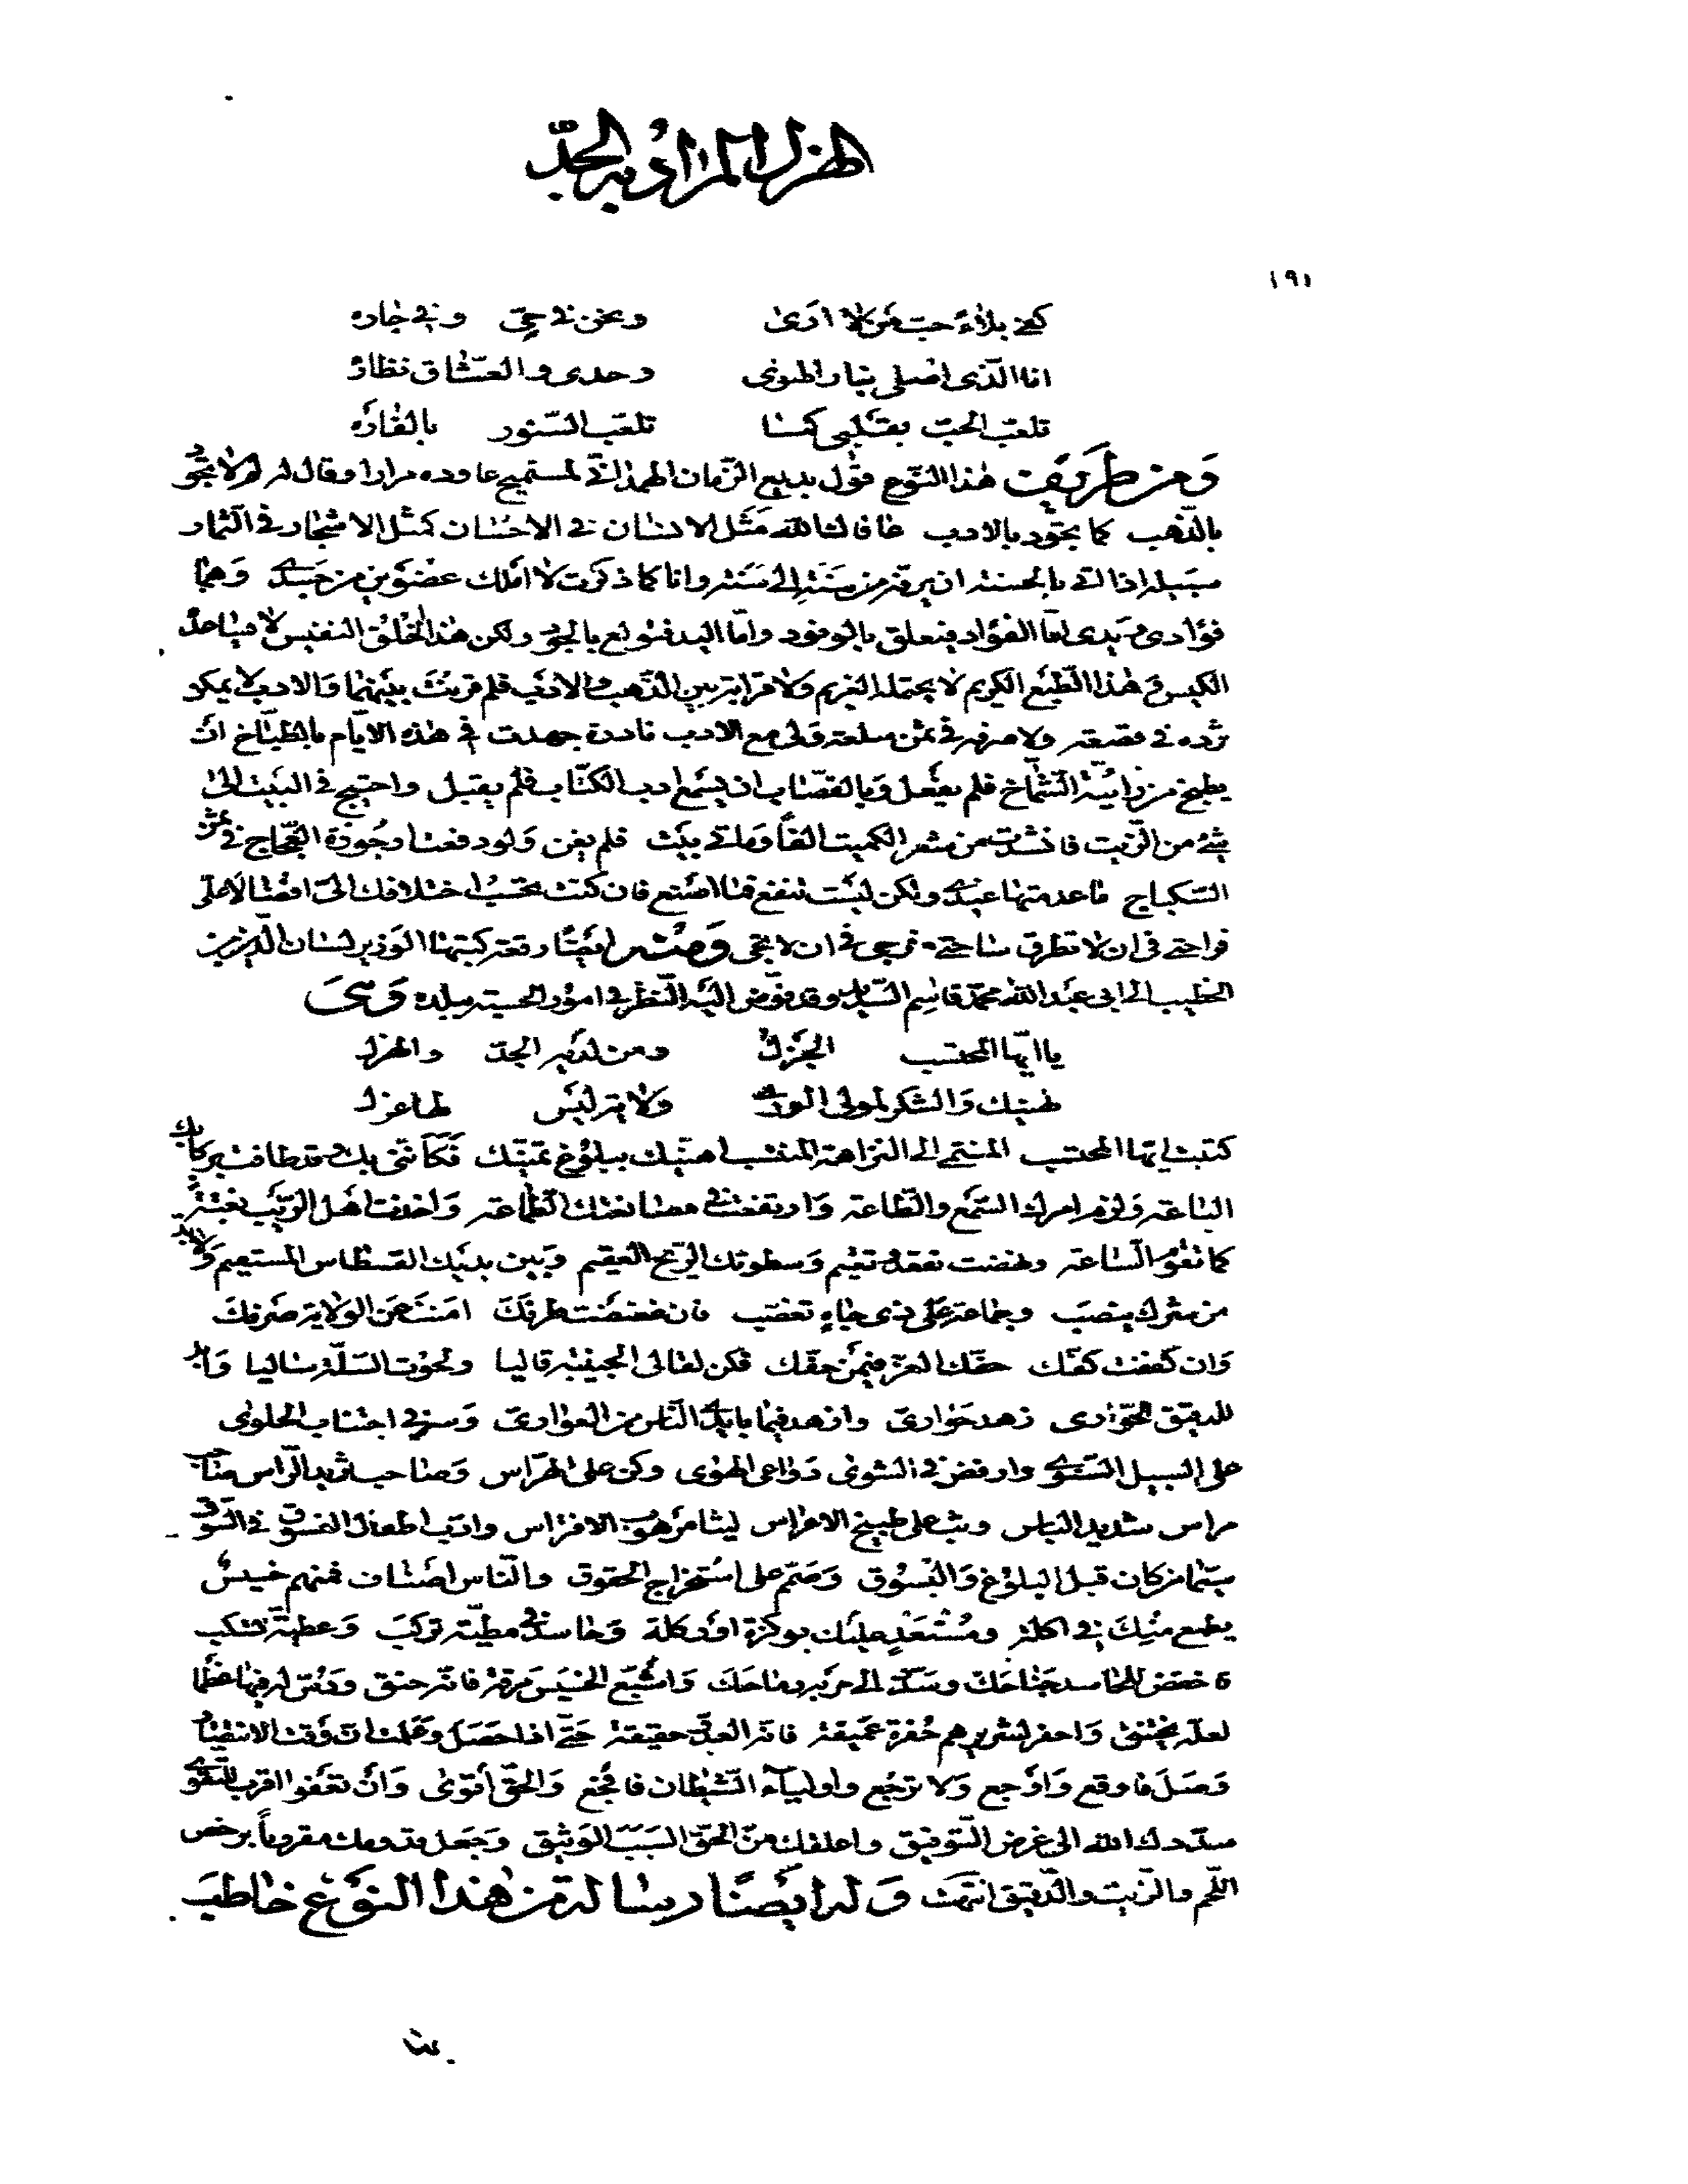 الهزل المراد به الجدّ
١٩١
كفى بلاء حبّ من لا ارى ونحن في حيّ وفي حاره
انا الّذى اصلى بنار الهوى وحدى والعشّاق نظاره
تلعّب الحبّ بقلبى كما تلعّب السّنور بالفاره
ومن ظريف هذا النّوع قول بديع الزّمان الهمذانيّ لمستميح عاوده مرارا وقال له لم لا تجود
بالذّهب كما تجود بالادب عافانا الله مثل الانسان في الاحسان كمثل الاشجار في الثمار
سبيله اذا اتى بالحسنة ان يرفه من سنة الى سنة وانا كما ذكرت لا املك عضوين من جسدى وهما
فؤادى ويدى امّا الفؤاد فيعلق بالوفود وامّا اليد فتولع بالجود ولكن هذا الخلق النفيس لا يساعده
الكيس وهذا الطّبع الكريم لا يحتمله الغريم ولا قرابة بين الذّهب والادب فلم قرنت بينهما والادب لا يمكن
ثرده في قصعة ولا صرفه في ثمن سلعة ولى مع الادب نادرة جهدت في هذه الايّام بالطّبّاخ ان
يطبخ من زائيّة الشّمّاخ فلم يفعل وبالقصّاب ان يسمع ادب الكتّاب فلم يقبل واحتيج في البيت الى
شئ من الزّيت فانشدت من شعر الكميت الفاً ومائتي بيت فلم يغن ولو دفعت ارجوزة العجّاج في ثمن
السّكباج ما عدمتها عندى ولكن ليست تنفع فما اصنع فان كنت تحسب اختلافك الىّ افضالا علىّ
فراحتي في ان لا تطرق ساحتي وفرجى في ان لا تجى ومنه ايضًا رقعة كتبها الوزير لسان الدّين بن
الخطيب الى ابى عبد الله محمّد قاسم السّديد وقد فوّض اليه النّظر في امور الحسبة ببلده وهى
يا ايّها المحتسب الجزل ومن لديه الجدّ والهزل
تهنيك والشكر لمولى الورى ولاية ليس لها عزل
كتبت ايّها المحتسب المنتمى الى النزاهة المنتسب اهنّيك ببلوغ تمنّيك فكأنّنى بك وقد طافت بركابك
الباعة ولزم امرك السّمع والطّاعة وارتفعت في مصانعتك الطّماعة واخذت اهل الرّيب بغتة
كما تقوم السّاعة ونهضت تقعد وتقيم وسطوتك الرّيح العقيم وبين يديك القسطاس المستقيم ولا بدّ
من شرك ينصب وجماعة على ذى جاهٍ تعصّب فان غضضت طرفك امنت عن الولاية صرفك
وان كففت كفّك حفّك العزّ فيمن حفّك فكن لقالى المجبّنة قاليا ولحوت السّلّة ساليا وابد
للدقيق الحوّارى زهد حوارىّ وازهد فيما بايدى النّاس من العوارىّ وسر في اجتناب الحلوى
على السبيل السّوىّ وارفض في الشوى دواعى الهوى وكن على الهرّاس وصاحب ثريد الرّاس صاحب
مراس شديد الباس وثب على طبيخ الاعراس ليثا مرهوب الافتراس وادّب اطفال الفسوق في السّوق
سيّما من كان قبل البلوغ والبسوق وصمّم على استخراج الحقوق والنّاس اصناف فمنهم خسيس
يطمع منك في اكلة ومستعدٍ عليك بوكزة او ركلة وحاسد في مطيّة تركب وعطيّة تسكب
فاخفض للحاسد جناحك وسدّد الى حربه رماحك واشبع الخسيس مرقة فانّه حنق ودسّ له فيها عظما
لعلّه يختنق واحفر لشريرهم حفرة عميقة فانّه العدوّ حقيقة حتّى اذا حصل وعلمت انّ وقت الانتصار
وصل فاوقع واوجع ولا ترجع واولياء الشّيطان فافجع والحقّ أقوى وان تعفوا اقرب للتقوى
سدّدك الله الى غرض التّوفيق واعلقك من الحقّ السّبب الوثيق وجعل قدومك مقروناً برخص
اللّحم والزّيت والدّقيق انتهت وله ايضًا رسالة من هذا النوع خاطب